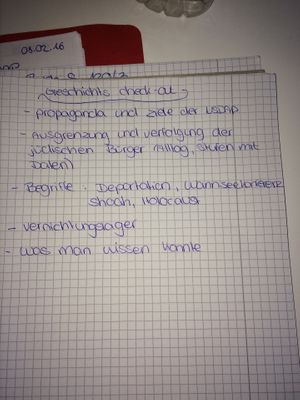 08.02.16
Geschichts check-out
- propaganda und ziele der NSDAP
- Ausgrenzung und verfolgung der
jüdischen Bürger (Alltag, stufen mit
Daten)
- Begriffe: Deportation, Wannseekonferenz
Shoah, Holocaust
- vernichtungslager
- was man wissen konnte